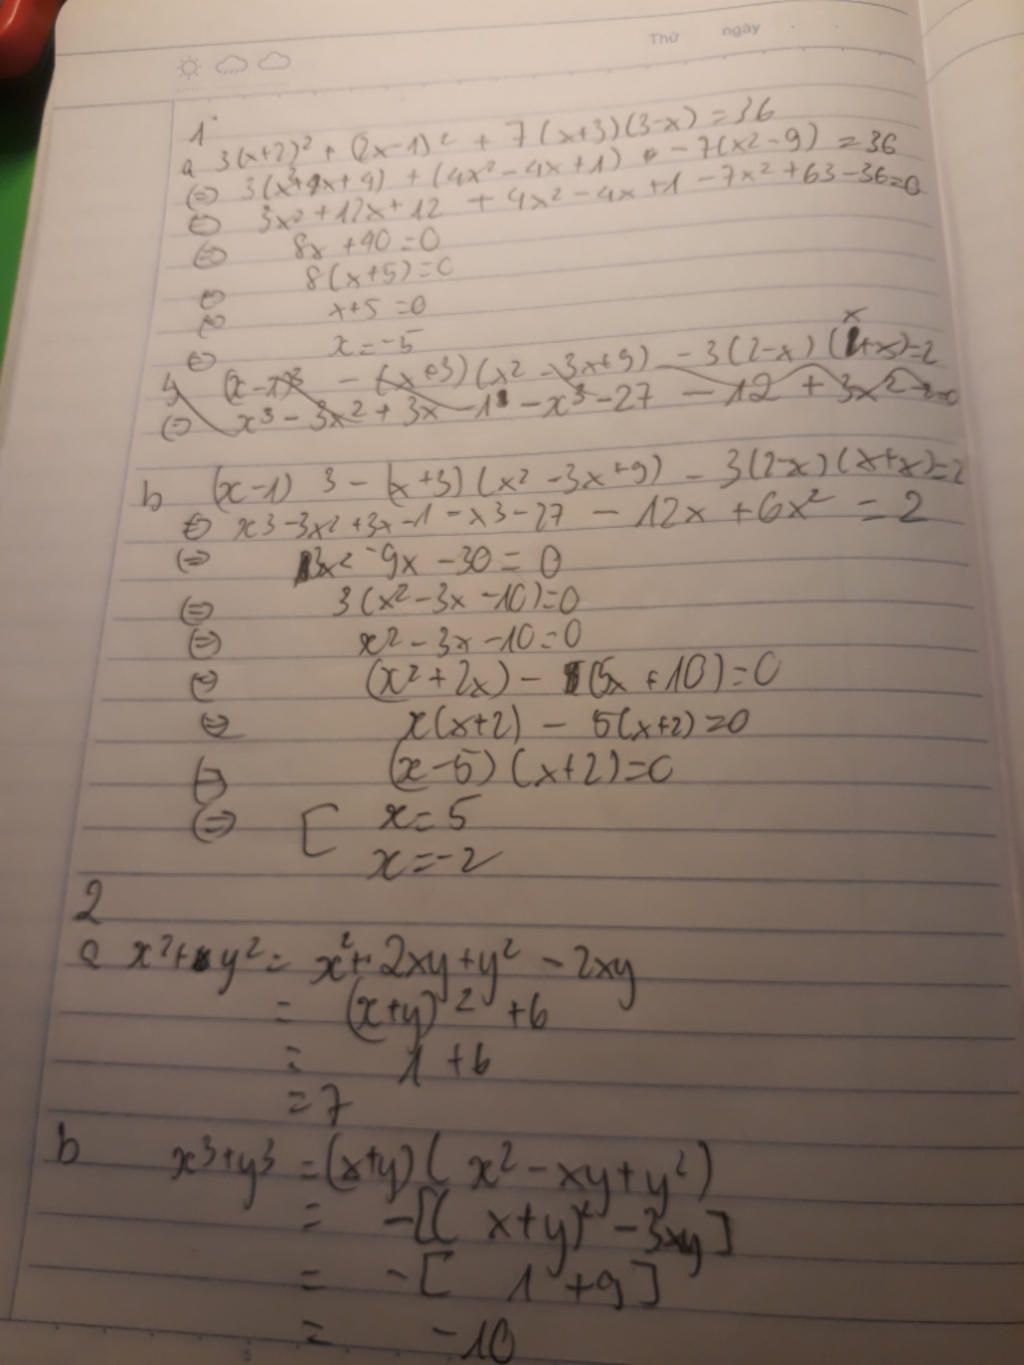 Thứ ngày
1
a 3(x+2)² + (2x-1)² + 7(x+3)(3-x) = 36
⇔ 3(x²+4x+4) + (4x²-4x+1) - 7(x²-9) = 36
⇔ 3x²+12x+12 + 4x²-4x+1-7x²+63-36=0
⇔ 8x+40=0
⇔ 8(x+5)=0
⇔ x+5=0
⇔ x=-5
(x-1)³ - (x+3)(x²-3x+9) - 3(2-x)( +x)=2
⇔ x³-3x²+3x-1-x³-27-12+3x²-2=0
b (x-1)3-(x+3)(x²-3x+9)-3(2-x)(x+x)=2
⇔ x3-3x²+3x-1-x3-27-12x+6x²=2
⇔ 3x²-9x-30=0
⇔ 3(x²-3x-10)=0
⇔ x²-3x-10=0
⇔ (x²+2x)-(5x+10)=0
⇔ x(x+2)-5(x+2)=0
⇔ (x-5)(x+2)=0
⇔ [ x=5
x=-2
2
a x²+y²= x²+2xy+y²-2xy
= (x+y)²+6
= 1+6
=7
b x³+y³ =(x+y)(x²-xy+y²)
= -[(x+y)²-3xy]
= -[1+9]
= -10